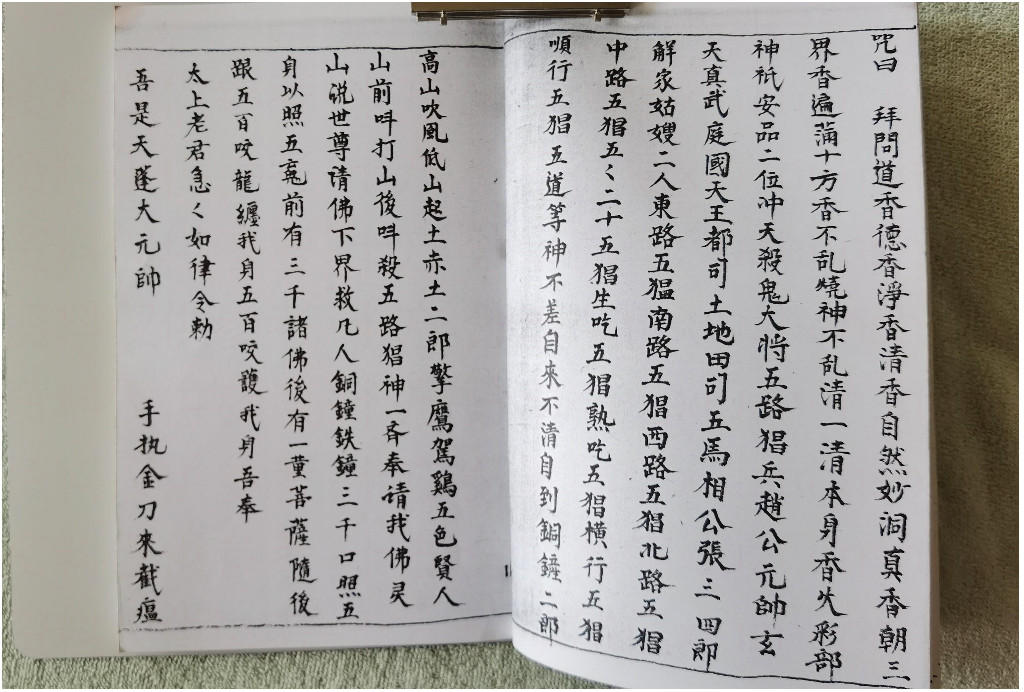 咒曰　拜問道香德香淨香清香自然妙洞真香朝三
界香遍蒲十方香不乱燒神不乱清一清本身香火彩部
神祇安品二位冲天殺鬼大將五路猖兵趙公元帥玄
天真武庭國天王都司土地田司五馬相公張三四郎
解家姑嫂二人東路五猖南路五猖西路五猖北路五猖
中路五猖五〻二十五猖生吃五猖熟吃五猖橫行五猖
順行五猖五道等神不差自來不清自到銅鐘二郎
高山吹風低山起土赤土二郎擎鷹駕鷄五色賢人
山前呌打山後呌殺五路猖神一斉奉请我佛灵
山说世尊请佛下界救凡人銅鐘鉄鐘三千口照五
身以照五竟前有三千諸佛後有一董菩薩隨後
跟五百咬龍纏我身五百咬護我身吾奉
太上老君急〻如律令勅
吾是天蓬大元帥　手执金刀來截瘟